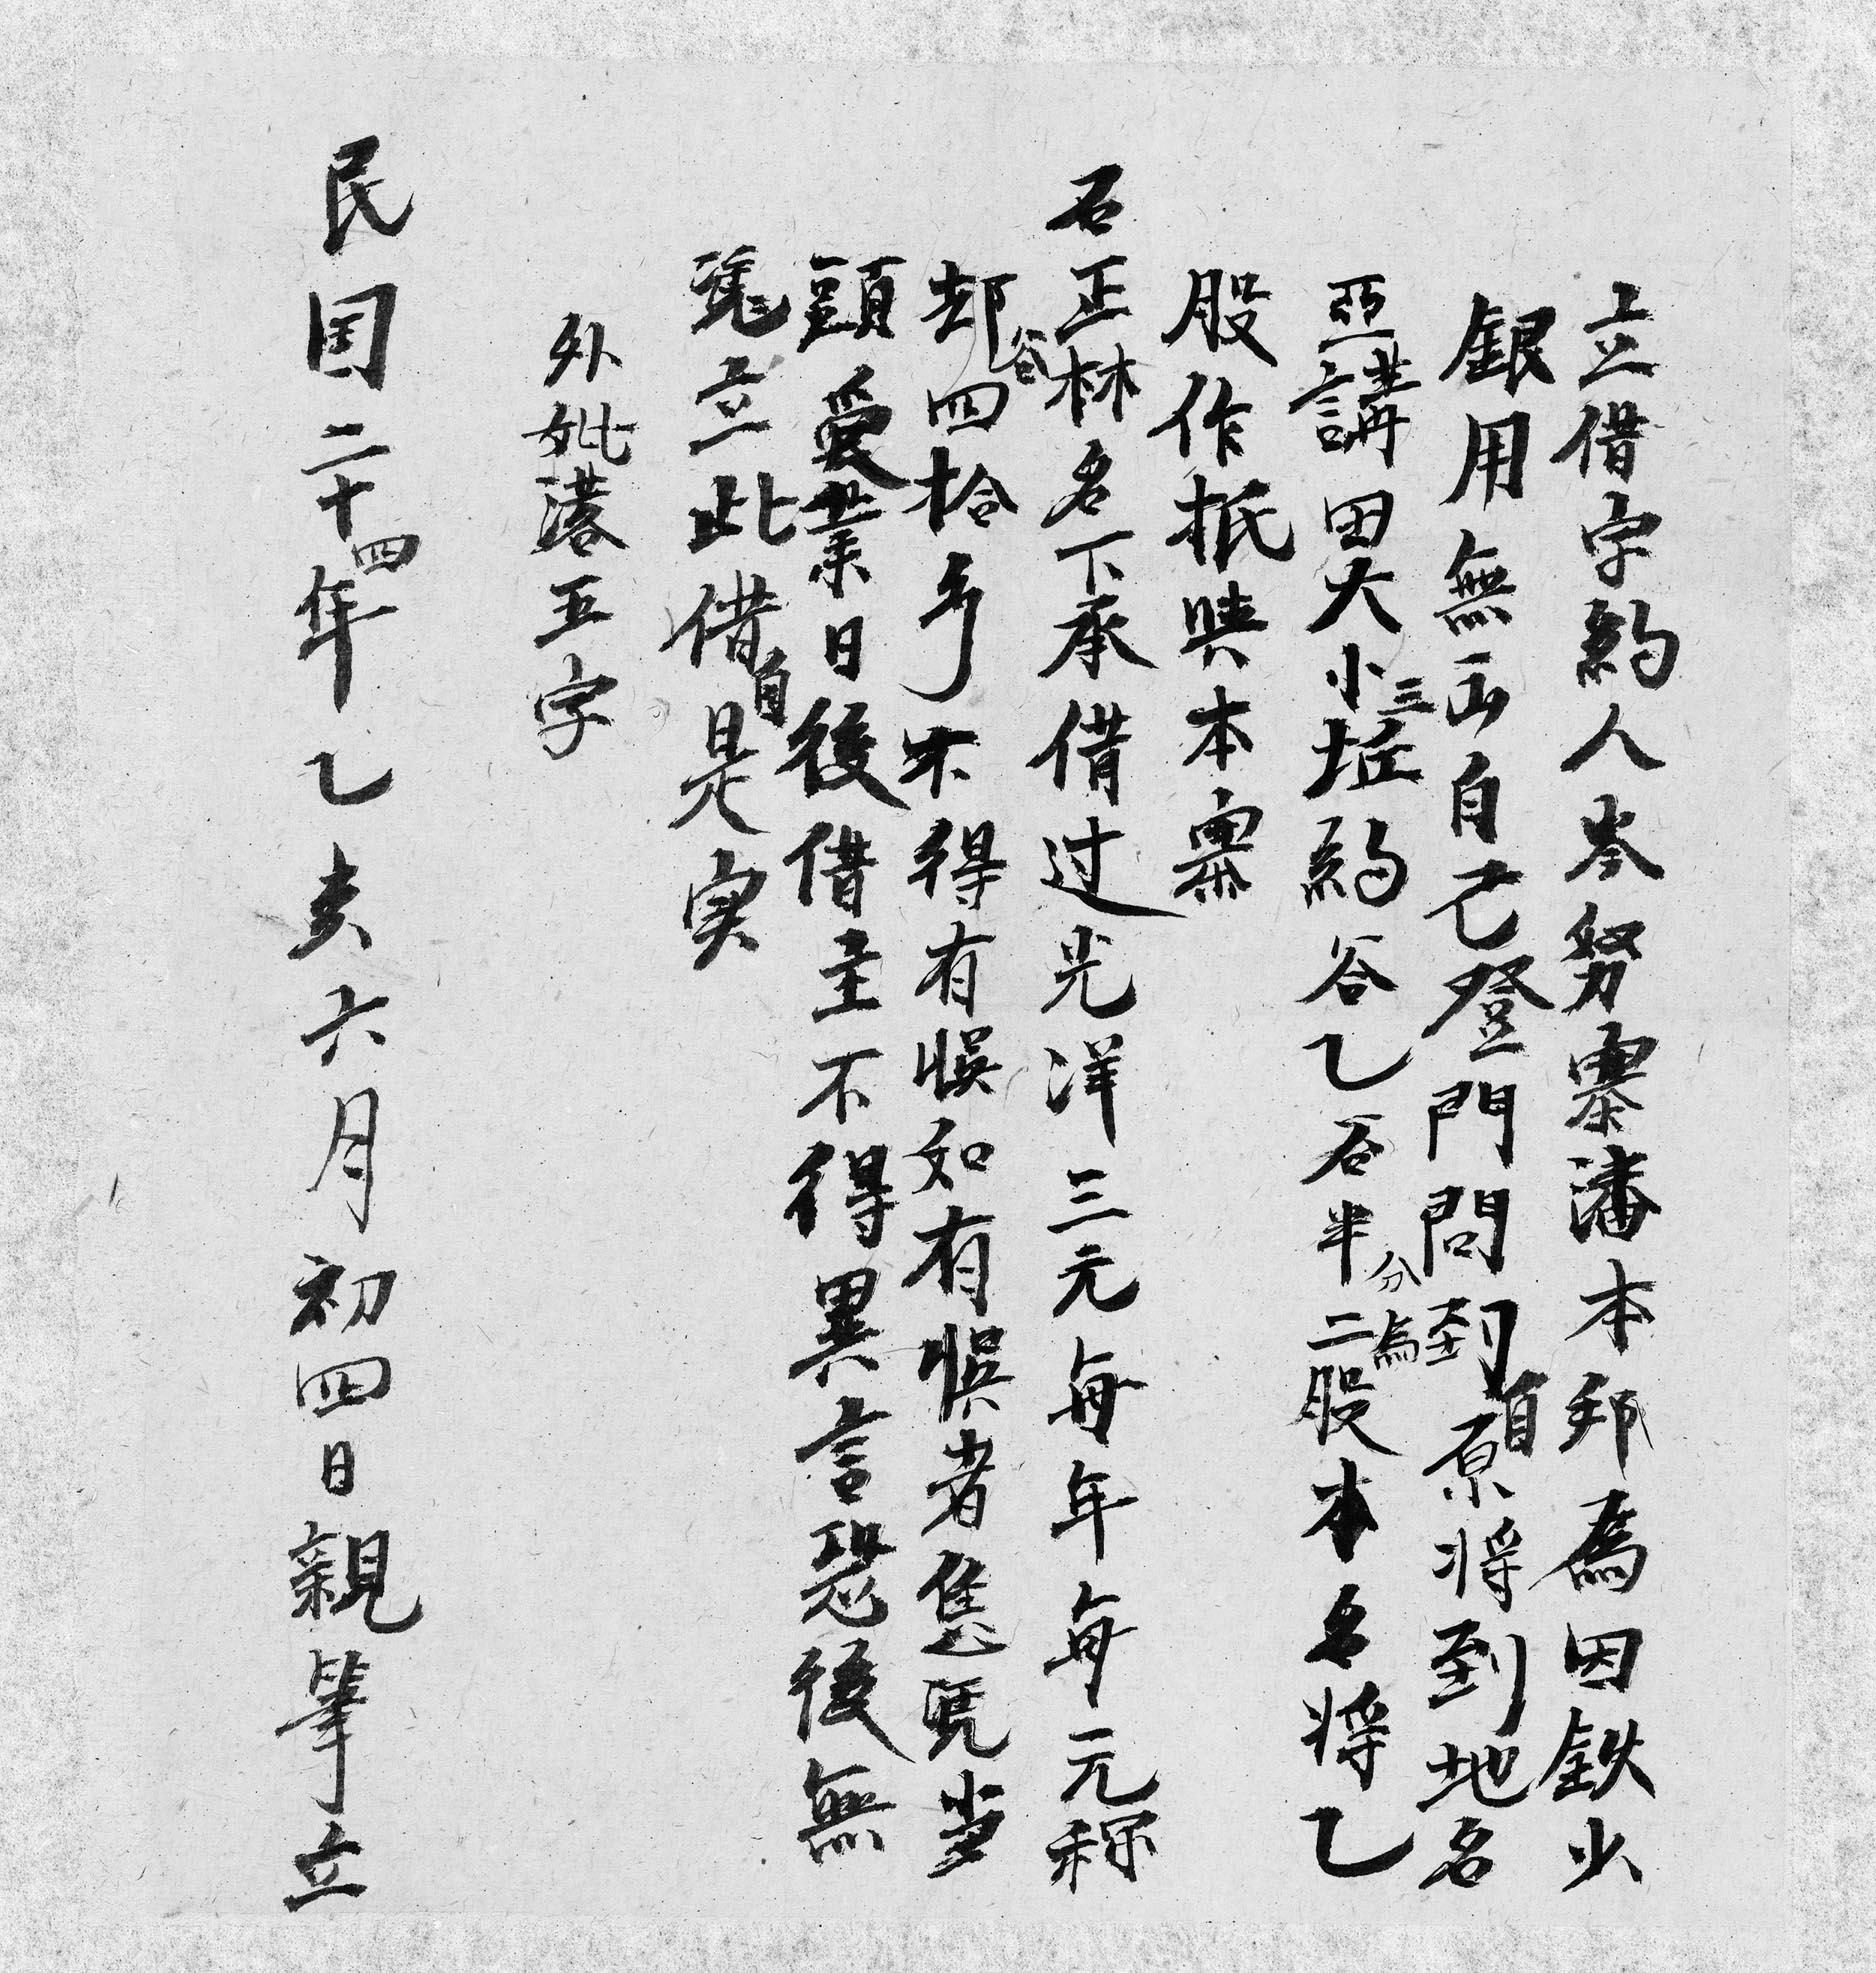 立借字約人岑努寨潘本邦為因缺少
銀用無出自己登門問到自原將到地名
亞講田大小三坵約谷乙石半分為二股本名將乙
股作抵與本寨
石正林名下承借过光洋三元每年每元称
却谷四拾斤不得有悞如有悞者隻凴當
頭受業日後借主不得異言恐後無
凴立此借自是实
外妣港五字
民国二十四年乙亥六月初四日親筆立